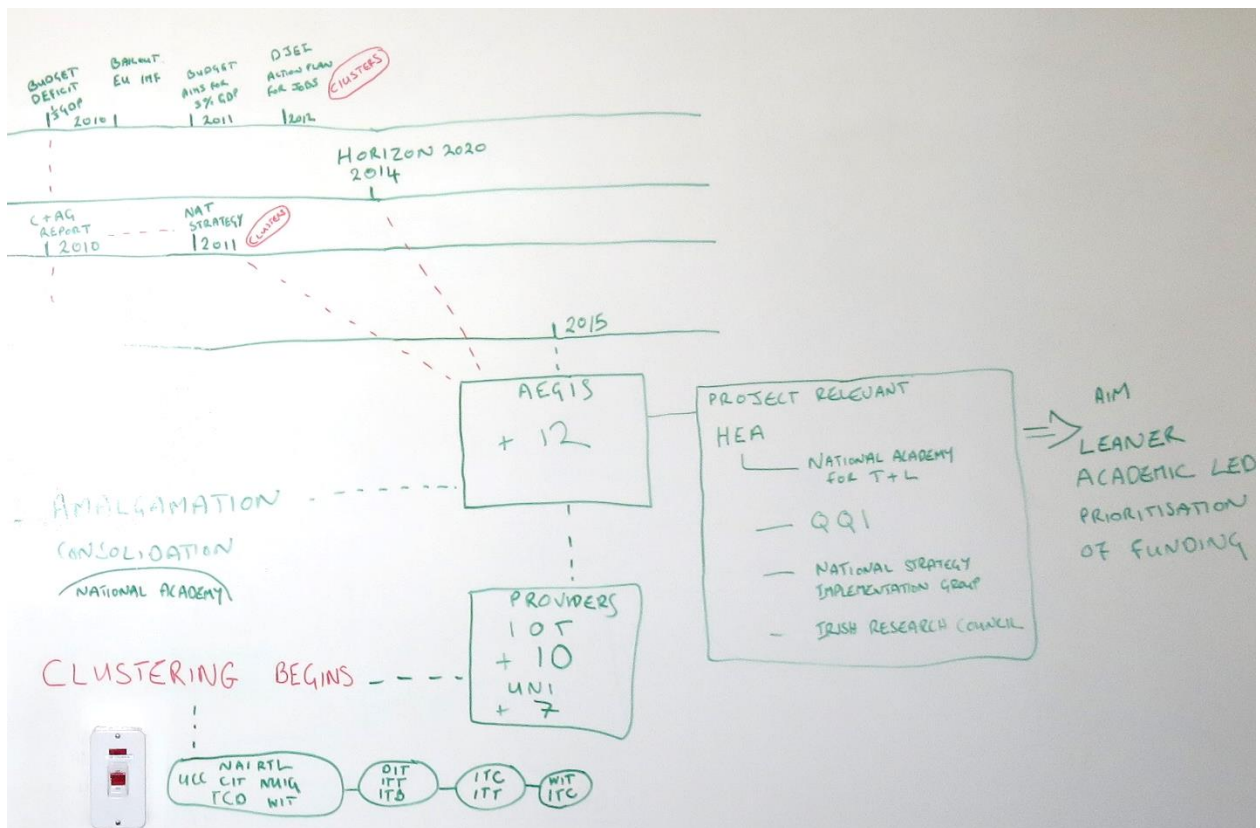 BUDGET
DEFICIT
⅓ GDP
2010
BAILOUT
EU IMF
BUDGET
AIMS FOR
3% GDP
2011
DJEI
ACTION PLAN
FOR JOBS
2012
CLUSTERS
HORIZON 2020
2014
C+AG
REPORT
2010
NAT
STRATEGY
2011
CLUSTERS
2015
AEGIS
+ 12
PROJECT RELEVANT
HEA
NATIONAL ACADEMY
FOR T+L
QQI
NATIONAL STRATEGY
IMPLEMENTATION GROUP
IRISH RESEARCH COUNCIL
AIM
LEANER
ACADEMIC LED
PRIORITISATION
OF FUNDING
AMALGAMATION
CONSOLIDATION
NATIONAL ACADEMY
PROVIDERS
IOT
+ 10
UNI
+ 7
CLUSTERING BEGINS
NAIRTL
UCC CIT NUIG
TCD WIT
DIT
ITT
ITB
ITC
ITT
WIT
ITC